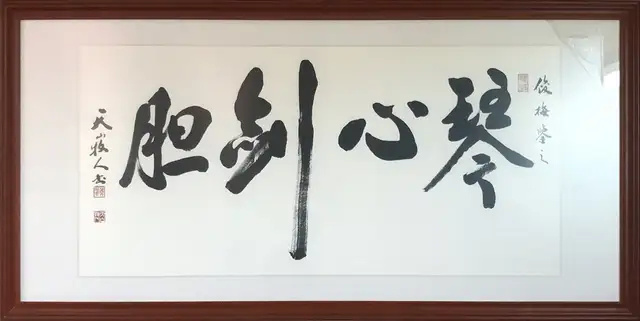 俊梅鉴之
琴心剑胆
天山人书